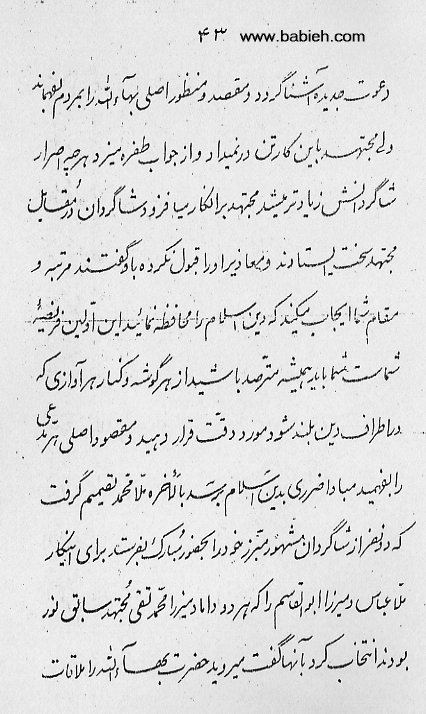 ۴۳ www.babieh.com
دعوت جدیده آشنا گردد و مقصد و منظور اصلی بهآءالله را بمردم بفهماند
ولی مجتهد باین کار تن در نمیداد و از جواب طفره میزد هر چه اصرار
شاگردانش زیادتر میشد مجتهد بر انکار میافزود شاگردان در مقابل
مجتهد سخت ایستادند و معاذیر او را قبول نکرده باو گفتند مرتبه و
مقام شما ایجاب میکند که دین اسلام را محافظه نمائید این اولین فریضهٔ
شماست شما باید همیشه مترصد باشید از هر گوشه و کنار هر آوازی که
در اطراف دین بلند شود مورد دقّت قرار دهید و مقصود اصلی هر مدّعی
را بفهمید مبادا ضرری بدین اسلام برسد بالأخره ملّا محمد تصمیم گرفت
که دو نفر از شاگردان مشهور مبرّز خود را بحضور مبارک بفرستد برای اینکار
ملّا عباس و میرزا ابوالقاسم را که هر دو داماد میرزا محمّد تقی مجتهد سابق نور
بودند انتخاب کرد بآنها گفت میروید حضرت بهآءالله را ملاقات